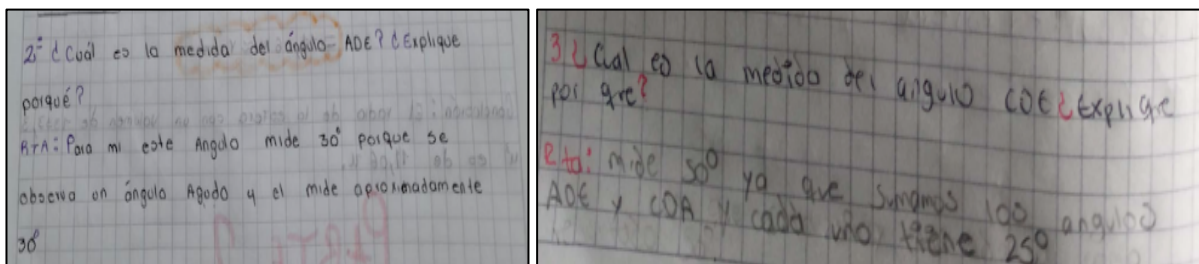 2º ¿Cuál es la medida del ángulo ADE? ¿Explique
porqué?
RTA: Para mi este Angulo mide 30° porque se
observa un ángulo Agudo y el mide aproximadamente
30°
3 ¿Cal es la medida del angulo CDE ¿Explique
por que?
Rta: mide 50° ya que sumamos los angulos
ADE y CDA y cada uno tiene 25°